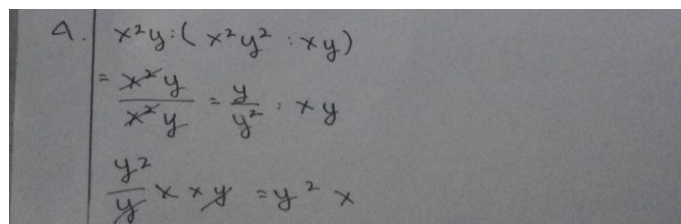 A. x²y : ( x²y² : xy )
= x²y / x²y = y / y² : xy
y² / y x xy = y² x